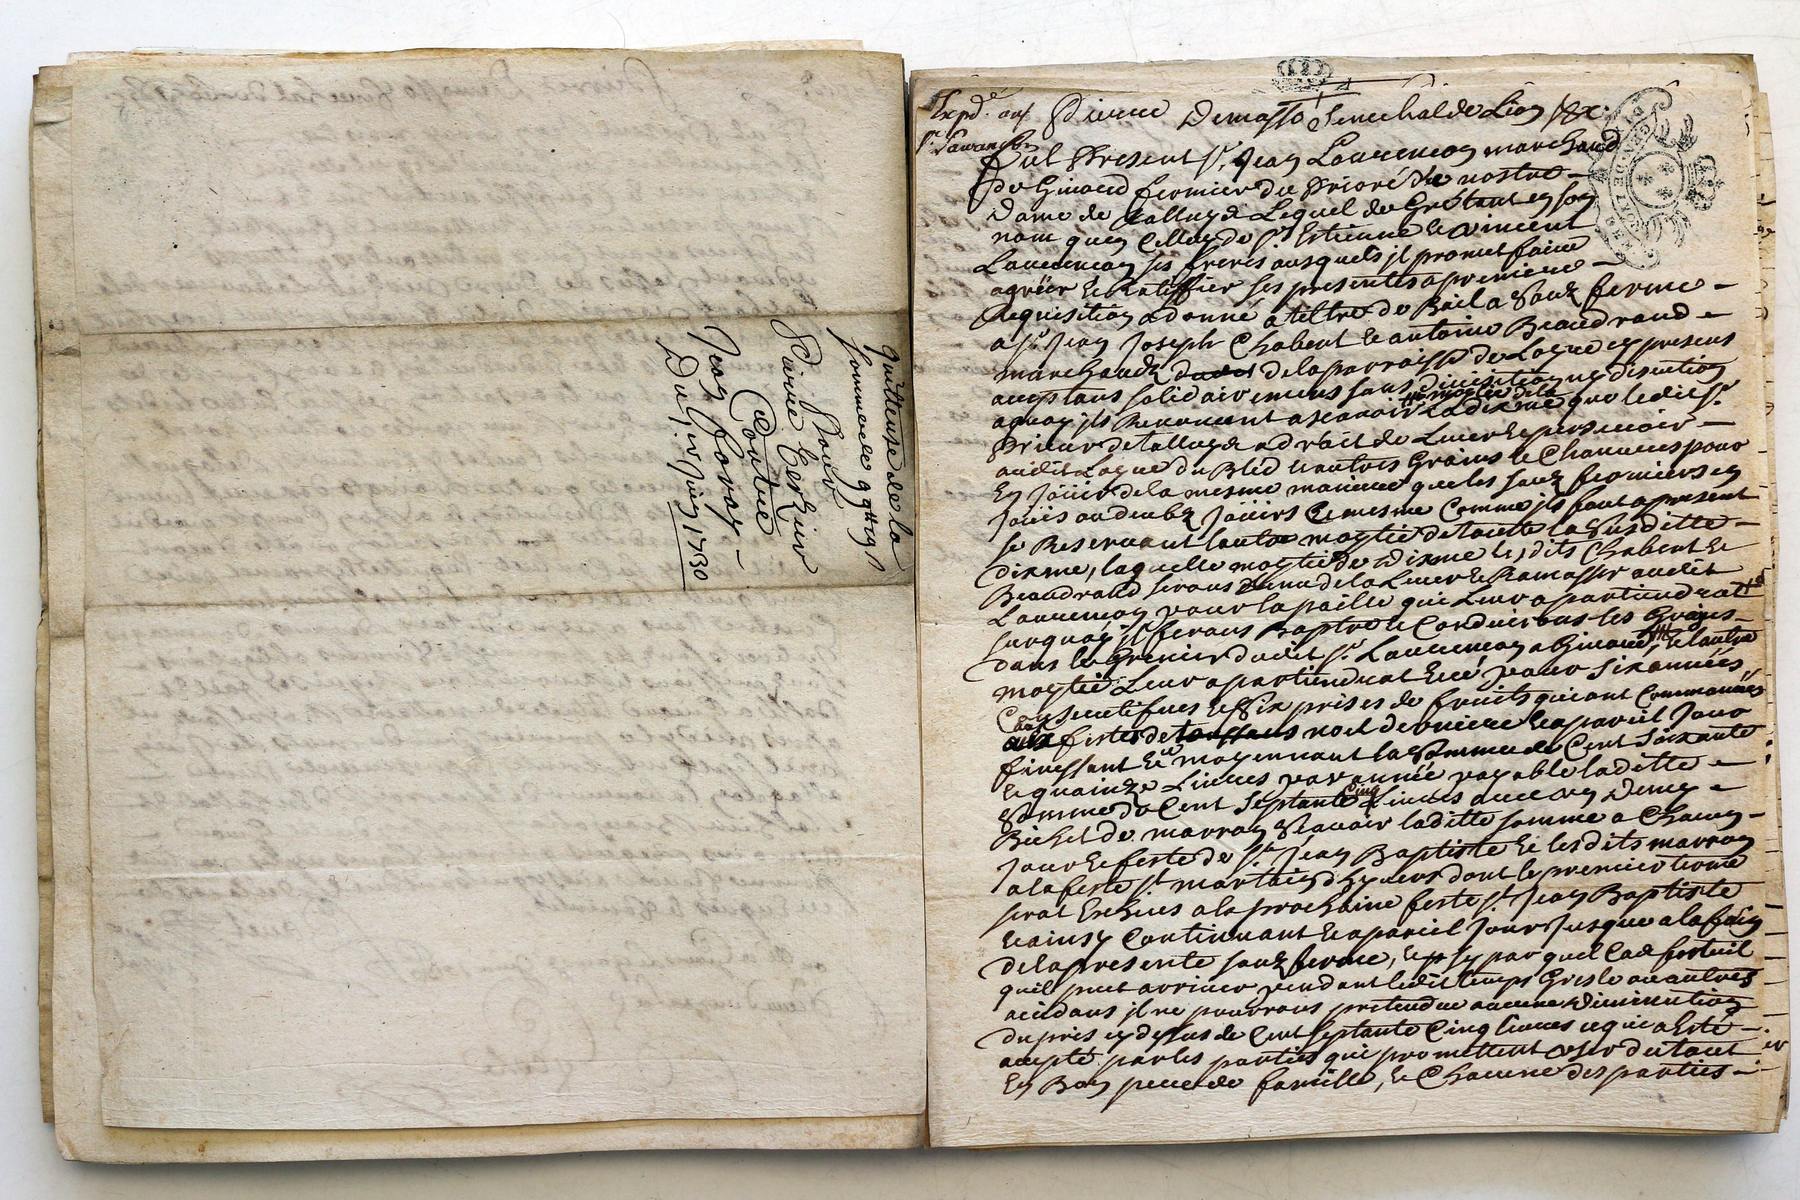 quittense de la
somme de 99# 19s
Pour
Pierre Terzier
Contre
Jean foray
Du 1er Juin 1730
Expd. aux
Sr. Laurençon
Pierre Demasso senechal de Lion &c:
fut Present sr. Jean Laurençon marchand
de Girard fermier du Prioré de nostre
dame de talluyé Lequel de Gré tant en son
nom quen Celluy de sr. Estienne et vincent
Laurençon ses freres ausquels jl promet faire
agréer et Ratiffier ses presentes a premiere
Requisition a donné a tiltre de Bail a souz ferme
a sr. Jean Joseph Chabert et antoine Beaudrand
marchands de la parroisse de Logue cy presens
acceptans solidairement sans division ny discution
a quoy jls Renoncent a scavoir la moytié de la dixme que ledit sr.
Prieur de talluyé a droit de Lever et percevoir
audit Logue du Bled et autres Grains et Chanvres pour
En Joüir de la mesme maniere que les souz fermiers en
Joüis ou deubz Joüirs et mesme Comme jls font a present
se Reservant lautre moytié de toutte la susditte
dixme, laquelle moytié de dixme lesdits Chabert et
Beaudrand serons tenu de la Lever et Ramasser audit
Laurençon pour la paille qui Leur apartiendrat
surquoy jl ferons Battre et Conduirons les Grains
dans le Grenier dudit sr. Laurençon a Girard, et lautre
moytié Leur apartiendrat et cé pour six années
Consecutifves et six prises de fruits qui ont Commancées
aux festes de noel derniere et a pareil Jour
finissant et ce moyennant la somme de Cent soixante
et quainze Livres par année payable laditte
somme de Cent septante Cinq Livres avec un demy
Bichet de marron scavoir laditte somme a Chacun
Jour et feste de st. Jean Baptiste et lesdits marron
a la feste st. martin dhyvers dont le premier terme
serat Escheus a la prochaine feste st. Jean Baptiste
et ainsy Continuant et a pareil Jour Jusque a la fin
de la presente souz ferme, et sy par quel Cas fortuit
quil peut arriver pendant ledit temps Gresle ou autres
accidans jl ne pourrons pretendre aucune diminution
du pris cy dessus de Cent septante Cinq livres ce qui a Esté
accepté par les parties qui promettent user du tout
En Bon pere de famille, et Chacune des parties